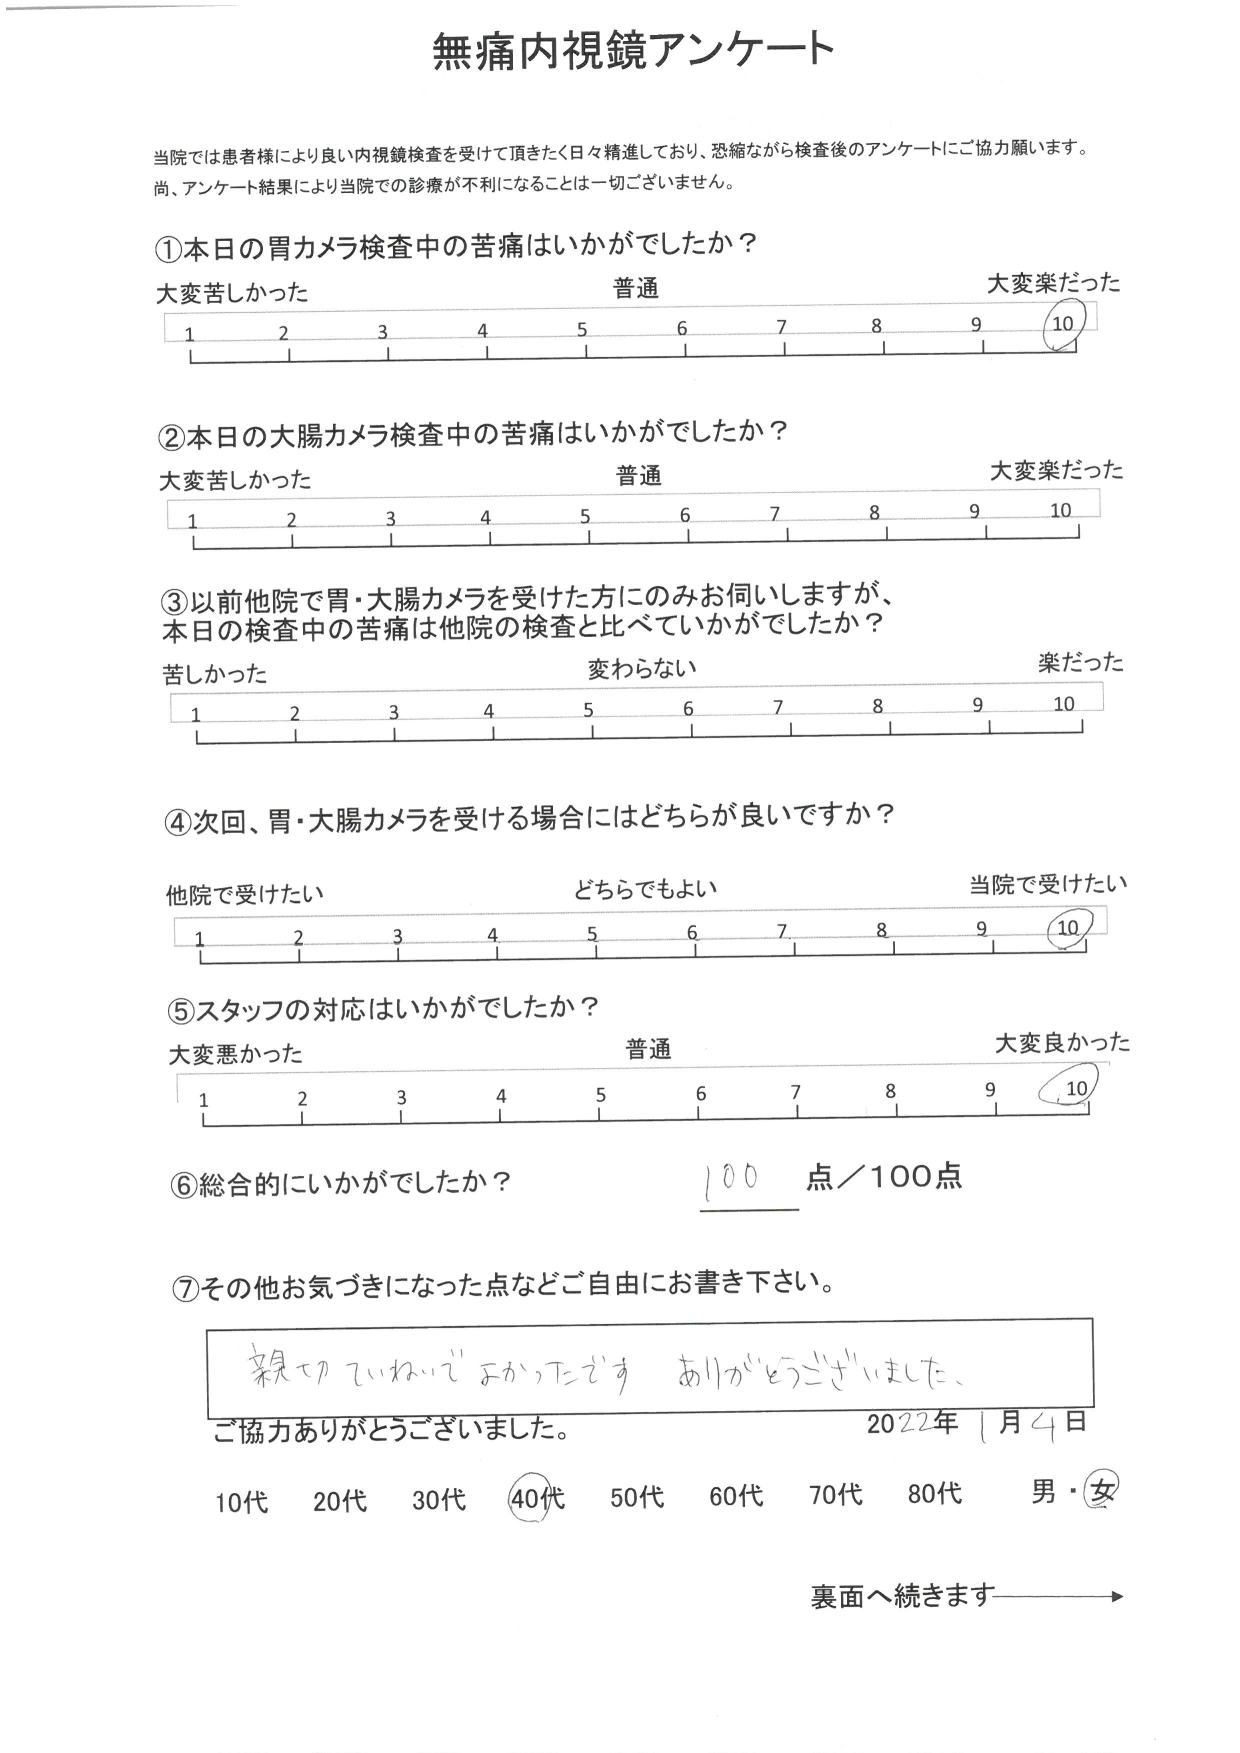 無痛内視鏡アンケート
当院では患者様により良い内視鏡検査を受けて頂きたく日々精進しており、恐縮ながら検査後のアンケートにご協力願います。
尚、アンケート結果により当院での診療が不利になることは一切ございません。
①本日の胃カメラ検査中の苦痛はいかがでしたか？
大変苦しかった 普通 大変楽だった
1 2 3 4 5 6 7 8 9 10
②本日の大腸カメラ検査中の苦痛はいかがでしたか？
大変苦しかった 普通 大変楽だった
1 2 3 4 5 6 7 8 9 10
③以前他院で胃・大腸カメラを受けた方にのみお伺いしますが、
本日の検査中の苦痛は他院の検査と比べていかがでしたか？
苦しかった 変わらない 楽だった
1 2 3 4 5 6 7 8 9 10
④次回、胃・大腸カメラを受ける場合にはどちらが良いですか？
他院で受けたい どちらでもよい 当院で受けたい
1 2 3 4 5 6 7 8 9 10
⑤スタッフの対応はいかがでしたか？
大変悪かった 普通 大変良かった
1 2 3 4 5 6 7 8 9 10
⑥総合的にいかがでしたか？ 100 点／100点
⑦その他お気づきになった点などご自由にお書き下さい。
親切 ていねいで よかったです ありがとうございました、
ご協力ありがとうございました。 2022年 1月4日
10代 20代 30代 40代 50代 60代 70代 80代 男・女
裏面へ続きます